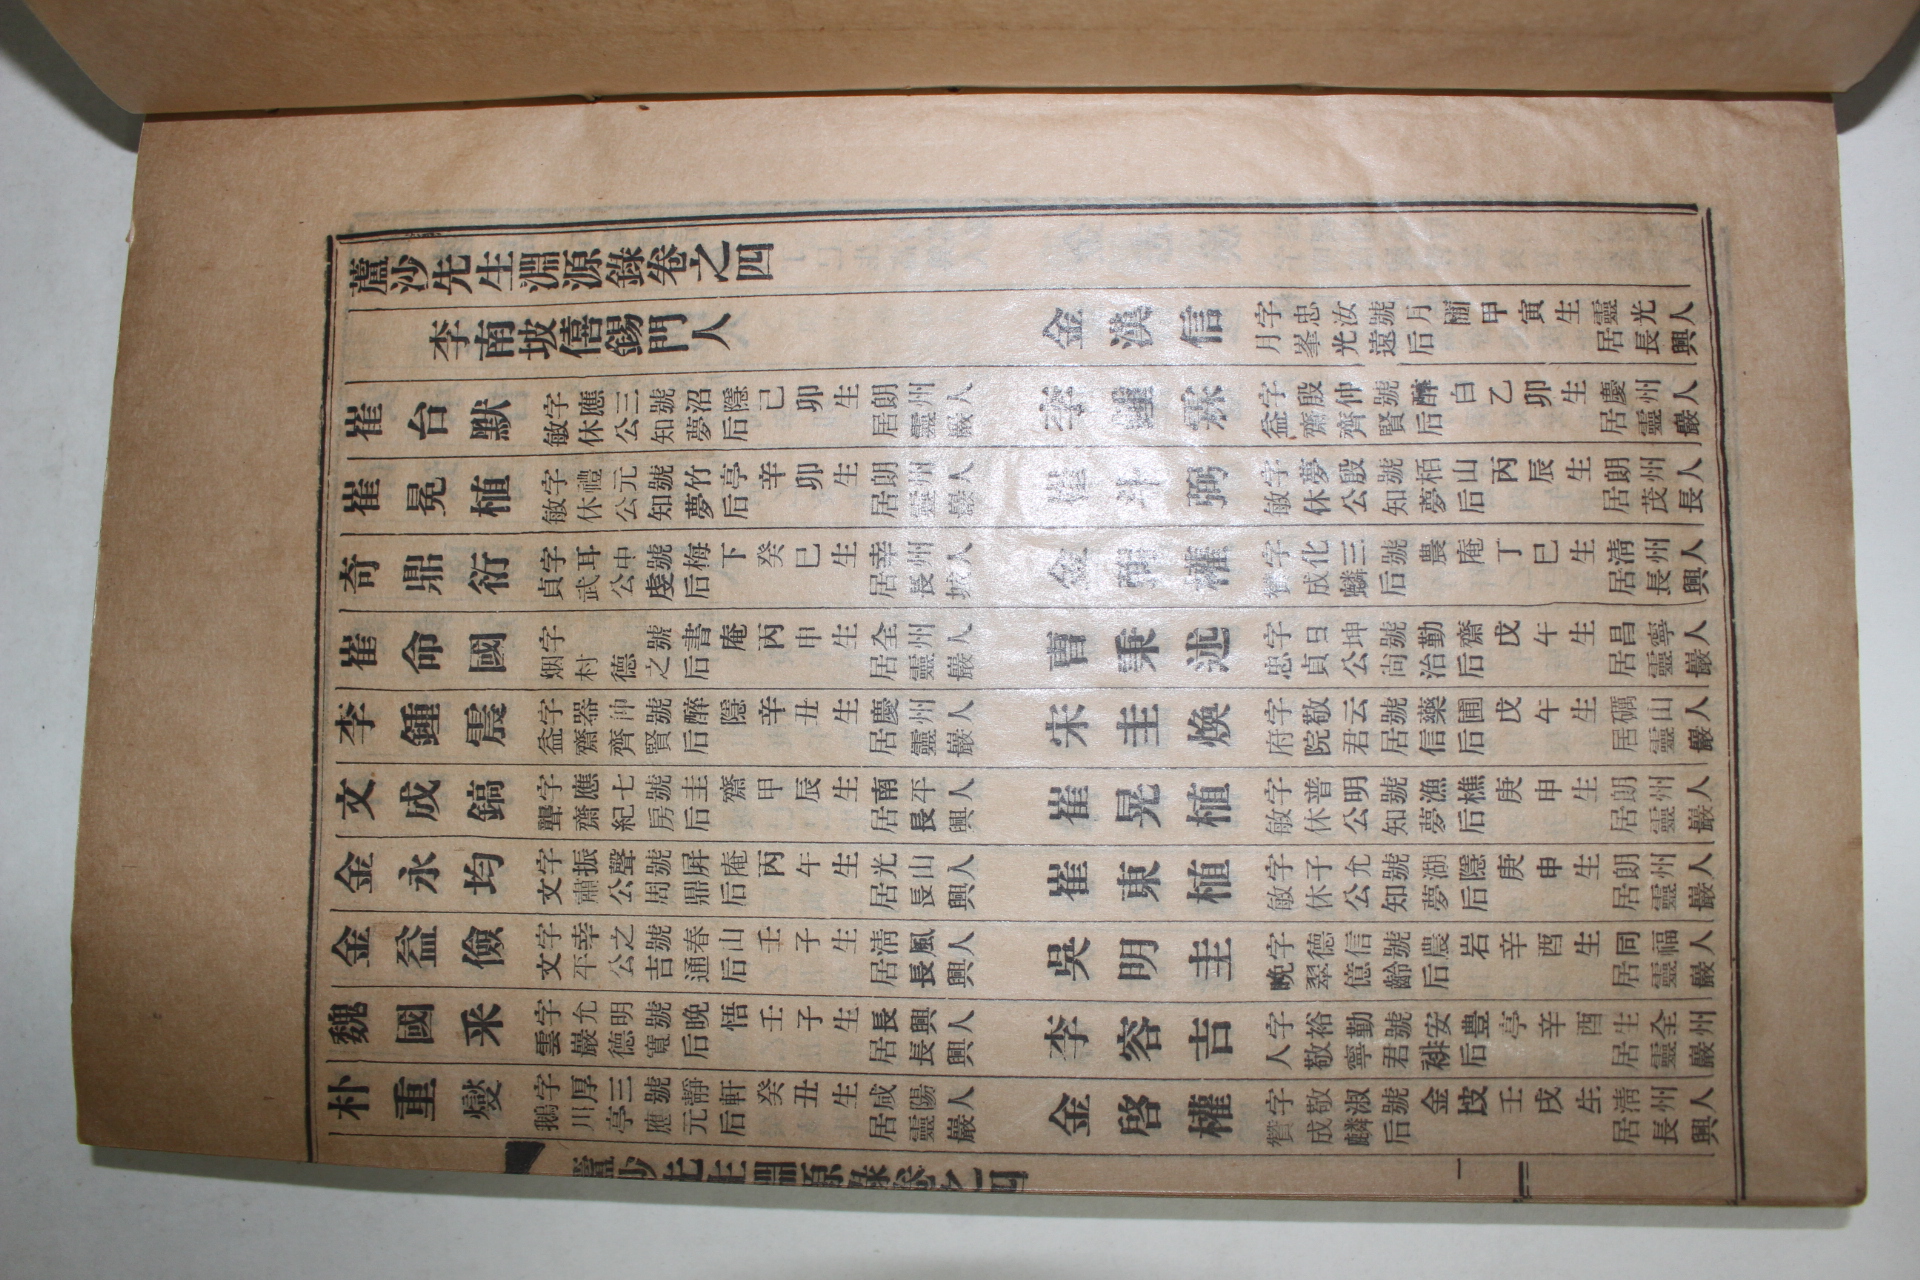 蘆沙先生淵源錄卷之四
李南坡僖錫門人
崔台默 字應三號沼隱 敏休公知夢后 己卯生 朗州人 居靈巖
崔冕植 字禮元號竹亭 敏休公知夢后 辛卯生 朗州人 居靈巖
奇鼎衍 字耳中號梅下 貞武公虔后 癸巳生 幸州人 居長城
崔命國 字 號書庵 烟村德之后 丙申生 全州人 居靈巖
李鍾震 字器仲號醉隱 益齋齊賢后 辛丑生 慶州人 居靈巖
文成鎬 字應七號圭齋 聾齋紀房后 甲辰生 南平人 居長興
金永均 字振聲號屛庵 文肅公周鼎后 丙午生 光山人 居長興
金益儉 字幸之號春山 文平公吉通后 壬子生 淸風人 居長興
魏國采 字允明號晩悟 雲巖德寬后 壬子生 長興人 居長興
朴重燮 字厚三號靜軒 鵝川亭應元后 癸丑生 咸陽人 居靈巖
金漢信 字忠汝號月 月峯光遠后 甲寅生 靈光人 居長興
李鍾 字殷仲號醉白 益齋齊賢后 乙卯生 慶州人 居靈巖
崔斗弼 字夢殷號栢山 敏休公知夢后 丙辰生 朗州人 居茂長
金 權 字化三號農庵 贊成麟后 丁巳生 淸州人 居長興
曺秉述 字日坤號勤齋 忠貞公尙治后 戊午生 昌寧人 居靈巖
宋圭煥 字敬云號藥圃 府院君居信后 戊午生 礪山人 居靈巖
崔晃植 字普明號漁樵 敏休公知夢后 庚申生 朗州人 居靈巖
崔東植 字子允號湖隱 敏休公知夢后 庚申生 朗州人 居靈巖
吳明圭 字德信號農岩 晩翠億齡后 辛酉生 同福人 居靈巖
李容吉 字裕勤號安豊亭辛酉生全州 人敬寧君裶后 居靈巖
金啓權 字敬淑號金坡 贊成麟后 壬戌生 淸州人 居長興
蘆沙先生淵源錄卷之四
一